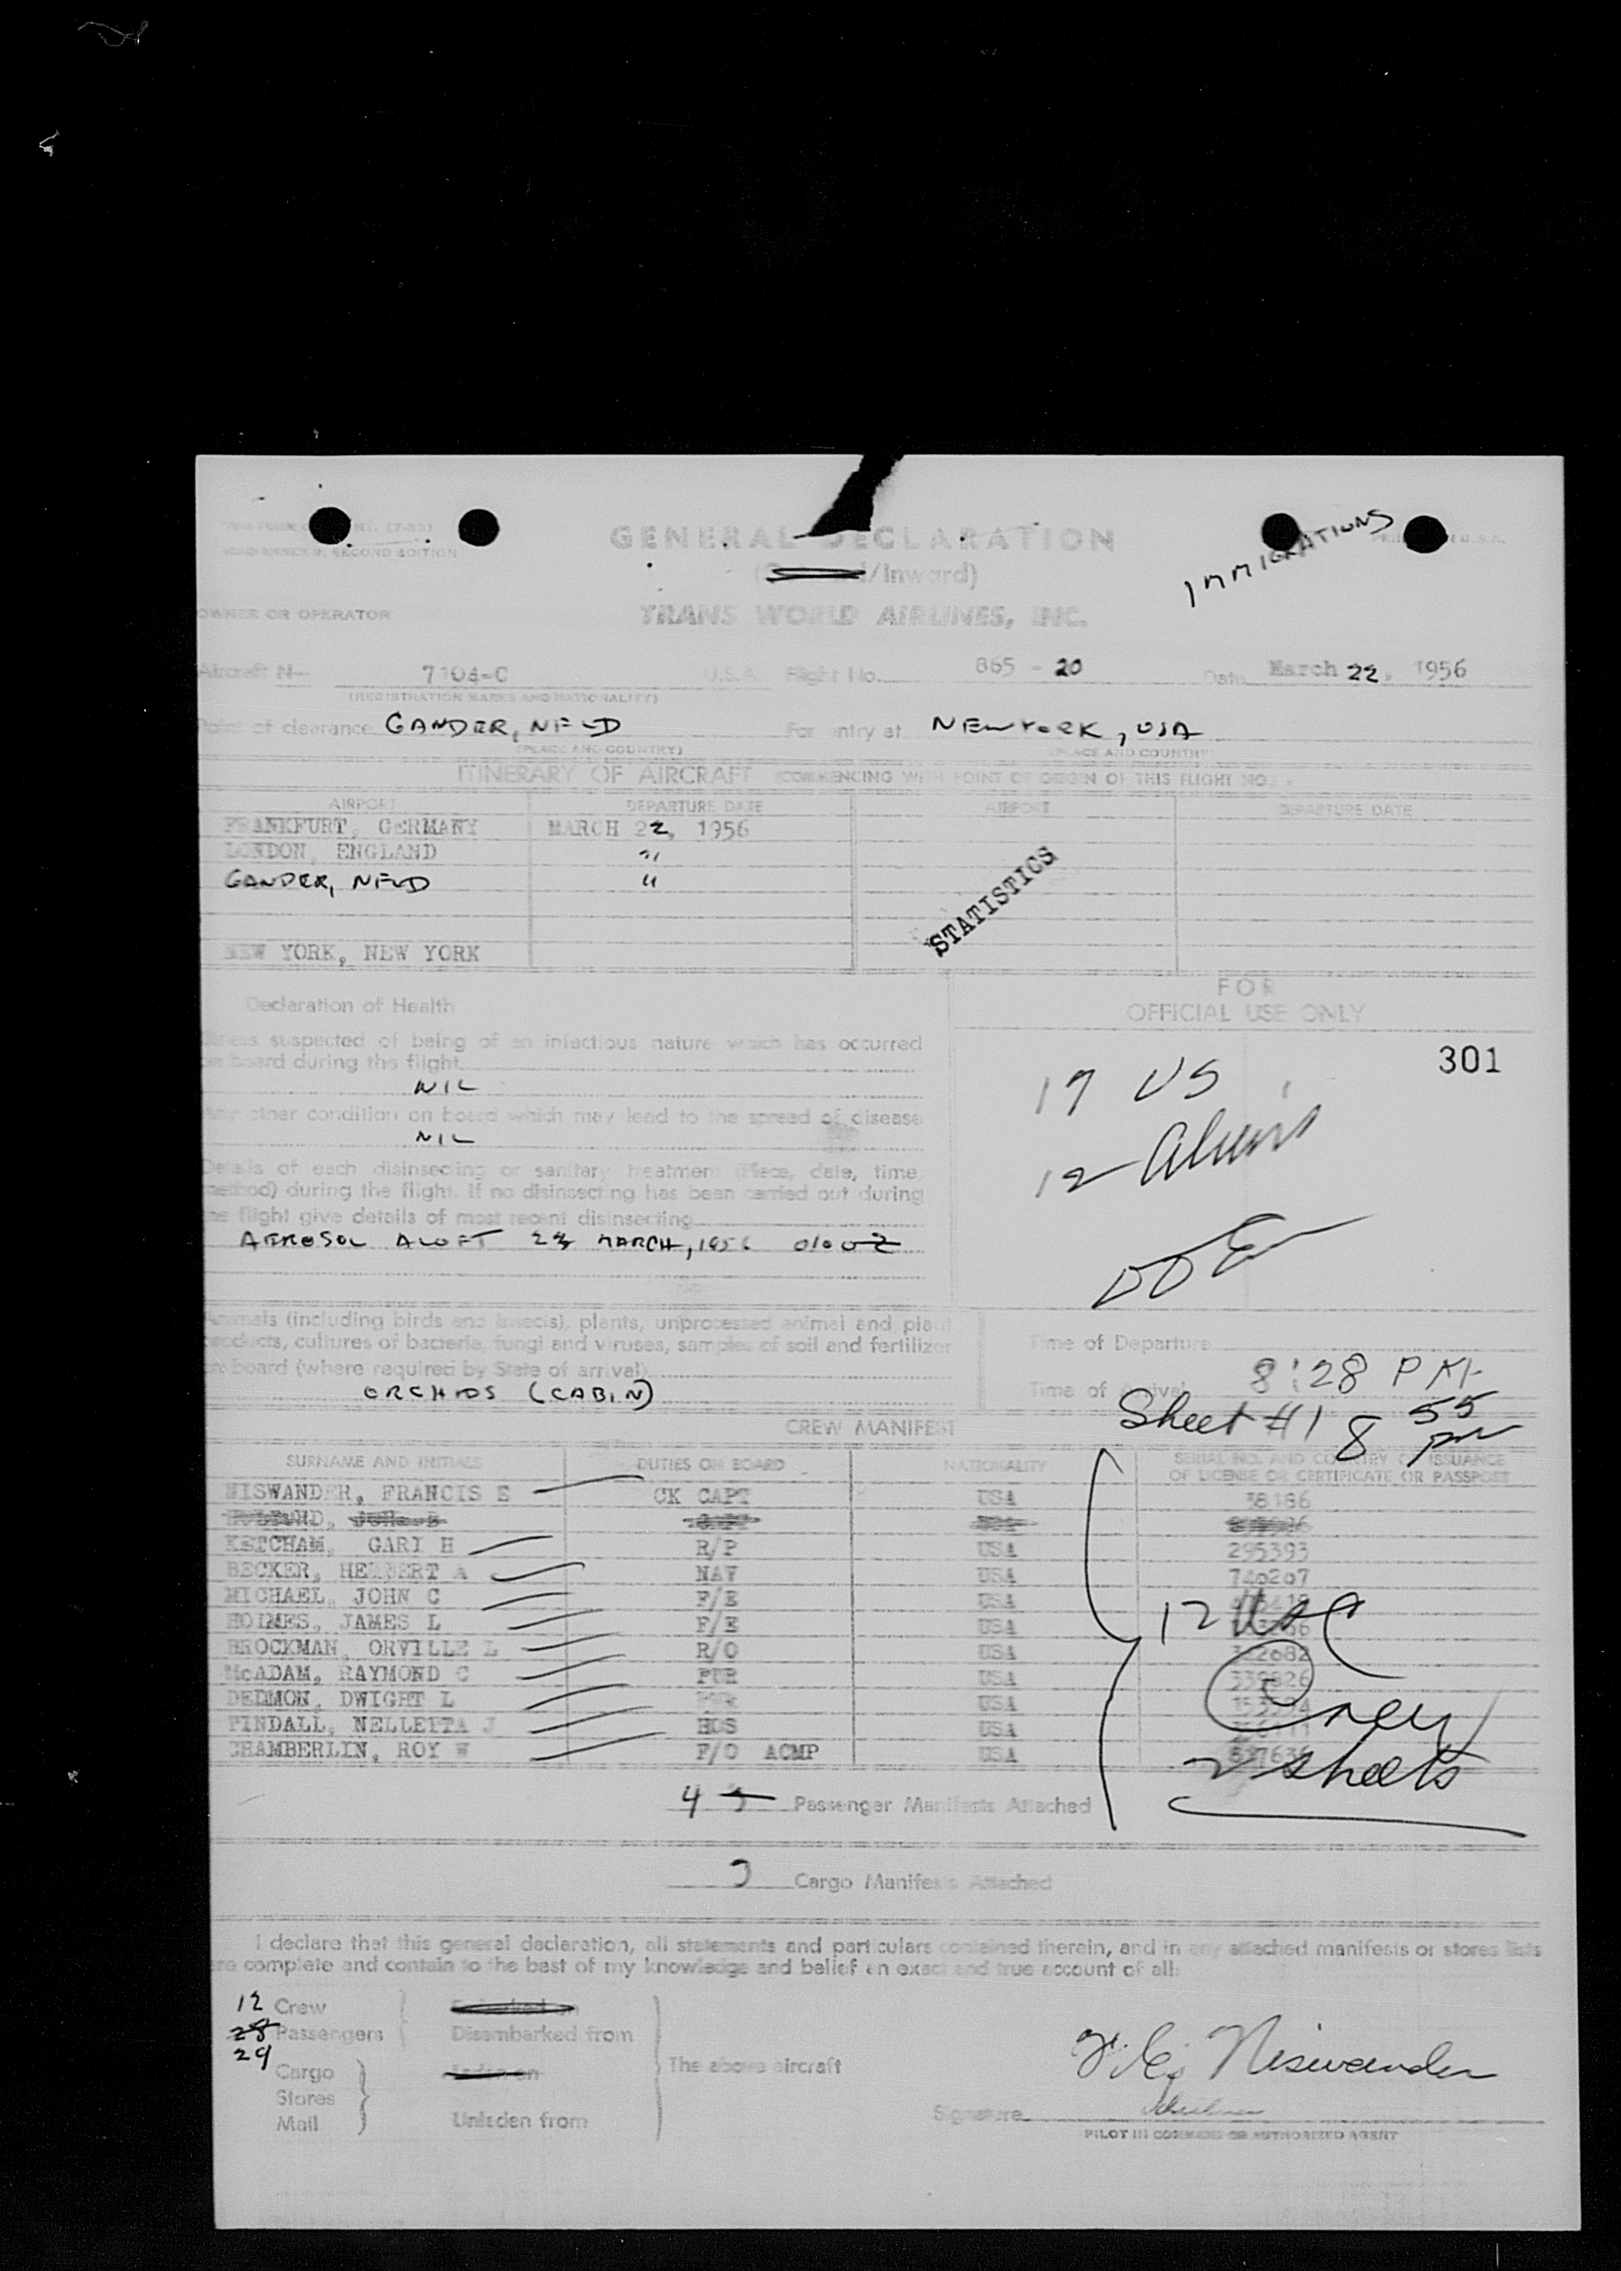 ICAO ANNEX 9, SECOND EDITION
GENERAL DECLARATION
/Inward)
IMMIGRATIONS
OWNER OR OPERATOR
TRANS WORLD AIRLINES, INC.
Aircraft N- 7104-C U.S.A. Flight No. 865 - 20 Date March 22, 1956
(REGISTRATION MARKS AND NATIONALITY)
Point of clearance GANDER, NFLD For entry at NEW YORK, USA
(PLACE AND COUNTRY) (PLACE AND COUNTRY)
ITINERARY OF AIRCRAFT (COMMENCING WITH POINT OF ORIGIN OF THIS FLIGHT NO.)
AIRPORT DEPARTURE DATE AIRPORT DEPARTURE DATE
FRANKFURT, GERMANY MARCH 22, 1956
LONDON, ENGLAND "
GANDER, NFLD "
STATISTICS
NEW YORK, NEW YORK
Declaration of Health
FOR
OFFICIAL USE ONLY
Illness suspected of being of an infectious nature which has occurred
on board during the flight
NIL
301
17 US
Any other condition on board which may lead to the spread of disease
NIL
12 Aliens
Details of each disinsecting or sanitary treatment (Place, date, time,
method) during the flight. If no disinsecting has been carried out during
the flight give details of most recent disinsecting
AEROSOL ALOFT 23 MARCH, 1956 0100Z
Animals (including birds and insects), plants, unprocessed animal and plant
products, cultures of bacteria, fungi and viruses, samples of soil and fertilizer
on board (where required by State of arrival)
ORCHIDS (CABIN)
Time of Departure
Time of Arrival 8:28 PM
Sheet #1 8 55 PM
CREW MANIFEST
SURNAME AND INITIALS DUTIES ON BOARD NATIONALITY SERIAL NO. AND COUNTRY OF ISSUANCE
OF LICENSE OR CERTIFICATE OR PASSPORT
NISWANDER, FRANCIS E CK CAPT USA 38186
KETCHAM, GARY H R/P USA 295393
BECKER, HERBERT A NAV USA 740207
MICHAEL, JOHN C F/E USA
HOLMES, JAMES L F/E USA
BROCKMAN, ORVILLE L R/O USA
McADAM, RAYMOND C PUR USA 339826
DEDMON, DWIGHT L USA
TINDALL, NELLETTA J HOS USA
CHAMBERLIN, ROY W F/O ACMP USA
12 USC
Crew
2 sheets
4 Passenger Manifests Attached
Cargo Manifests Attached
I declare that this general declaration, all statements and particulars contained therein, and in any attached manifests or stores lists
are complete and contain to the best of my knowledge and belief an exact and true account of all:
12 Crew
28 Passengers Disembarked from
29
Cargo Laden on The above aircraft
Stores
Mail Unladen from
F. E. Niswander
Signature
PILOT IN COMMAND OR AUTHORIZED AGENT